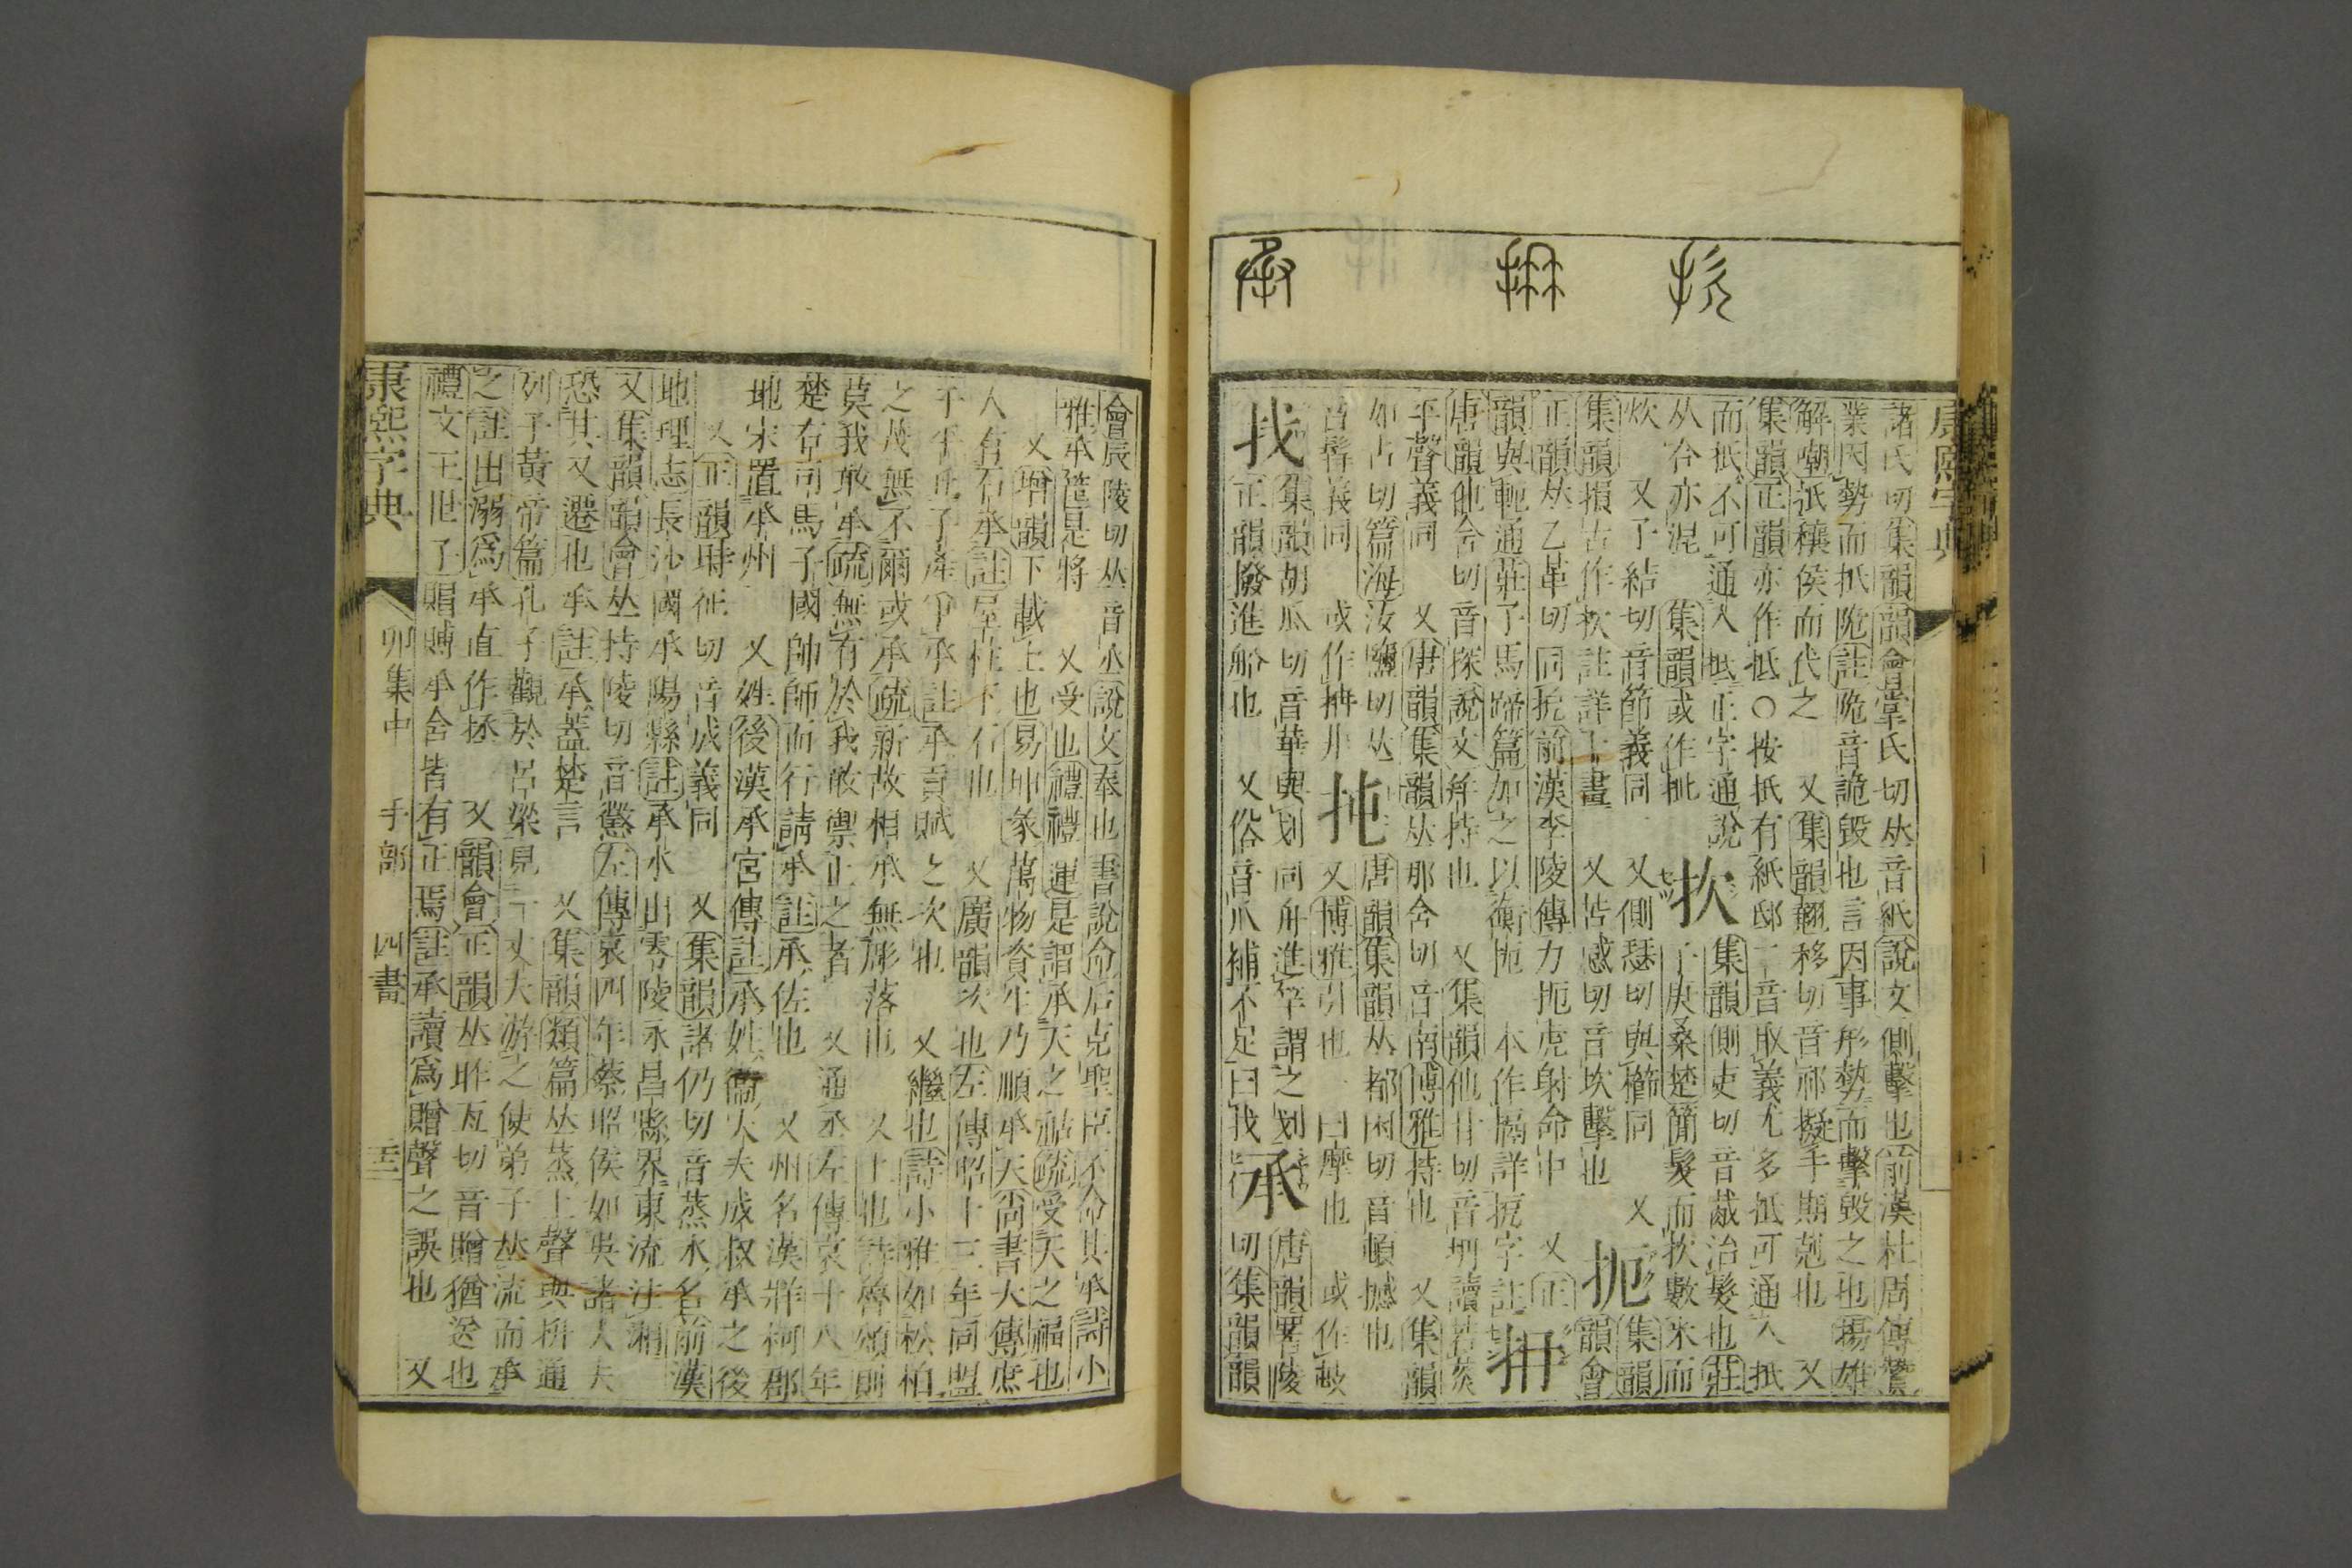 諸氏切集韻韻會掌氏切𠀤音紙說文側擊也前漢杜周傳贊
業因勢而抵陒註陒音詭毀也言因事形勢而擊毀之也揚雄
解嘲抵穰侯而代之 又集韻翹移切音祁擬手期剋也 又
集韻正韻亦作抵○按抵有紙邸二音取義尤多抵可通入抵
而抵不可通入抵正字通說
从合亦混 集韻或作批
抁
集韻側吏切音胾治髮也莊
子庚桑楚簡髮而抁數米而
炊 又子結切音節義同 又側瑟切與櫛同 又集韻
集韻損古作抁註詳十畫 又苦感切音坎擊也
扼
韻會
正韻𠀤乙革切同搤前漢李陵傳力扼虎射命中 又正
韻與軛通莊子馬蹄篇加之以衡扼 本作搹詳搹字註
抩
唐韻他含切音探說文幷持也 又集韻他甘切音坍讀若羨
平聲義同 又唐韻集韻𠀤那含切音南博雅持也 又集韻
如占切篇海汝鹽切𠀤
音髥義同 或作抩
扽
唐韻集韻𠀤都困切音頓撼也
又博雅引也 一曰摩也 或作㪟
找
集韻胡瓜切音華與划同舟進竿謂之划
正韻撥進船也 又俗音爪補不足曰找
承
唐韻署陵
切集韻韻
會辰陵切𠀤音丞說文奉也書說命后克聖臣不命其承詩小
雅承筐是將 又受也禮禮運是謂承天之祜疏受天之福也
又增韻下載上也易坤彖萬物資生乃順承天尚書大傳庶
人有石承註屋柱下石也 又廣韻次也左傳昭十三年同盟
于平丘子產爭承註承貢賦之次也 又繼也詩小雅如松柏
之茂無不爾或承疏新故相承無彫落也 又止也詩魯頌則
莫我敢承疏無有於我敢禦止之者 又通丞左傳哀十八年
楚右司馬子國帥師而行請承註承佐也 又州名漢牂柯郡
地宋置承州 又姓後漢承宮傳註承姓衞大夫成叔承之後
又正韻時征切音成義同 又集韻諸仍切音蒸水名前漢
地理志長沙國承陽縣註承水出零陵永昌縣界東流注湘
又集韻韻會𠀤持陵切音懲左傳哀四年蔡昭侯如吳諸大夫
恐其又遷也承註承蓋楚言 又集韻類篇𠀤蒸上聲與拚通
列子黃帝篇孔子觀於呂梁見一丈夫游之使弟子𠀤流而承
之註出溺爲承直作拯 又韻會正韻𠀤昨亙切音贈猶送也
禮文王世子賵賻承含皆有正焉註承讀爲贈聲之誤也 又
康熙字典
卯集中 手部 四畫